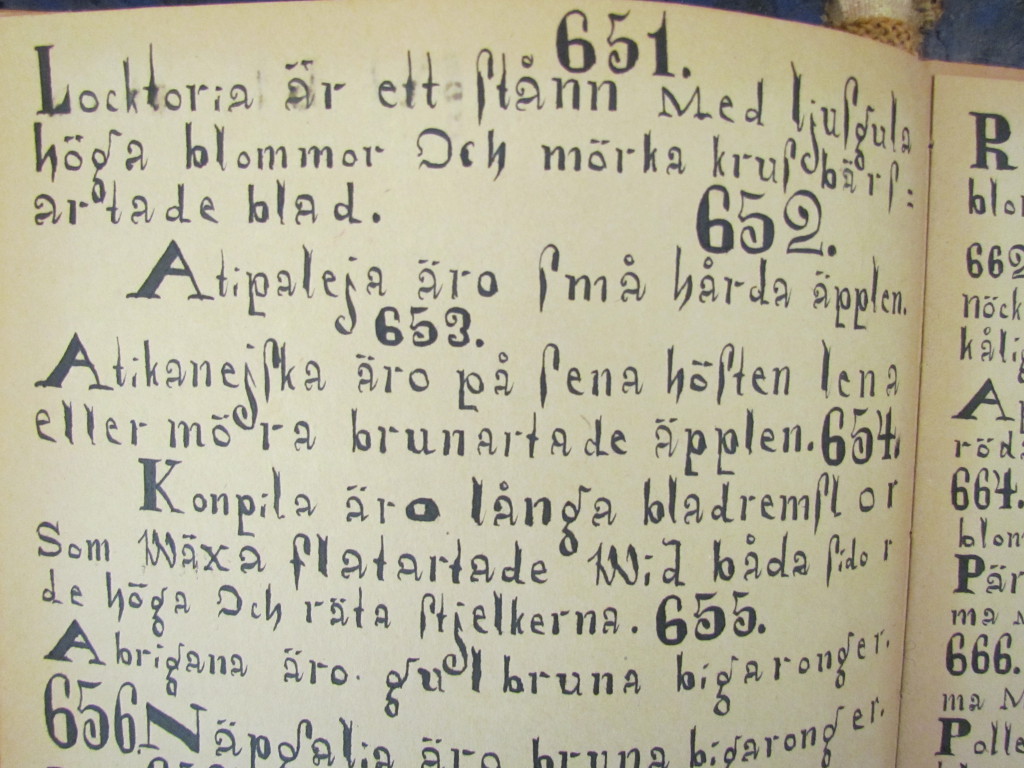 651.
Locktoria är ett ſtånn Med ljuſgula
höga blommor Och mörka kruſbärſ:
artade blad. 652.
Atipaleja äro ſmå hårda äpplen.
653.
Atikanejſka äro på ſena höſten lena
eller möra brunartade äpplen. 654.
Konpila äro långa bladremſlor
Som Wäxa flatartade Wid båda ſidor
de höga Och räta ſtjelkerna. 655.
Abrigana äro gul bruna bigaronger.
656 Näpgalja äro bruna bigaronger.
R
blo
662
nöck
kåli
Ap
röd
664.
blom
Pär
ma
666.
ma M
Polle